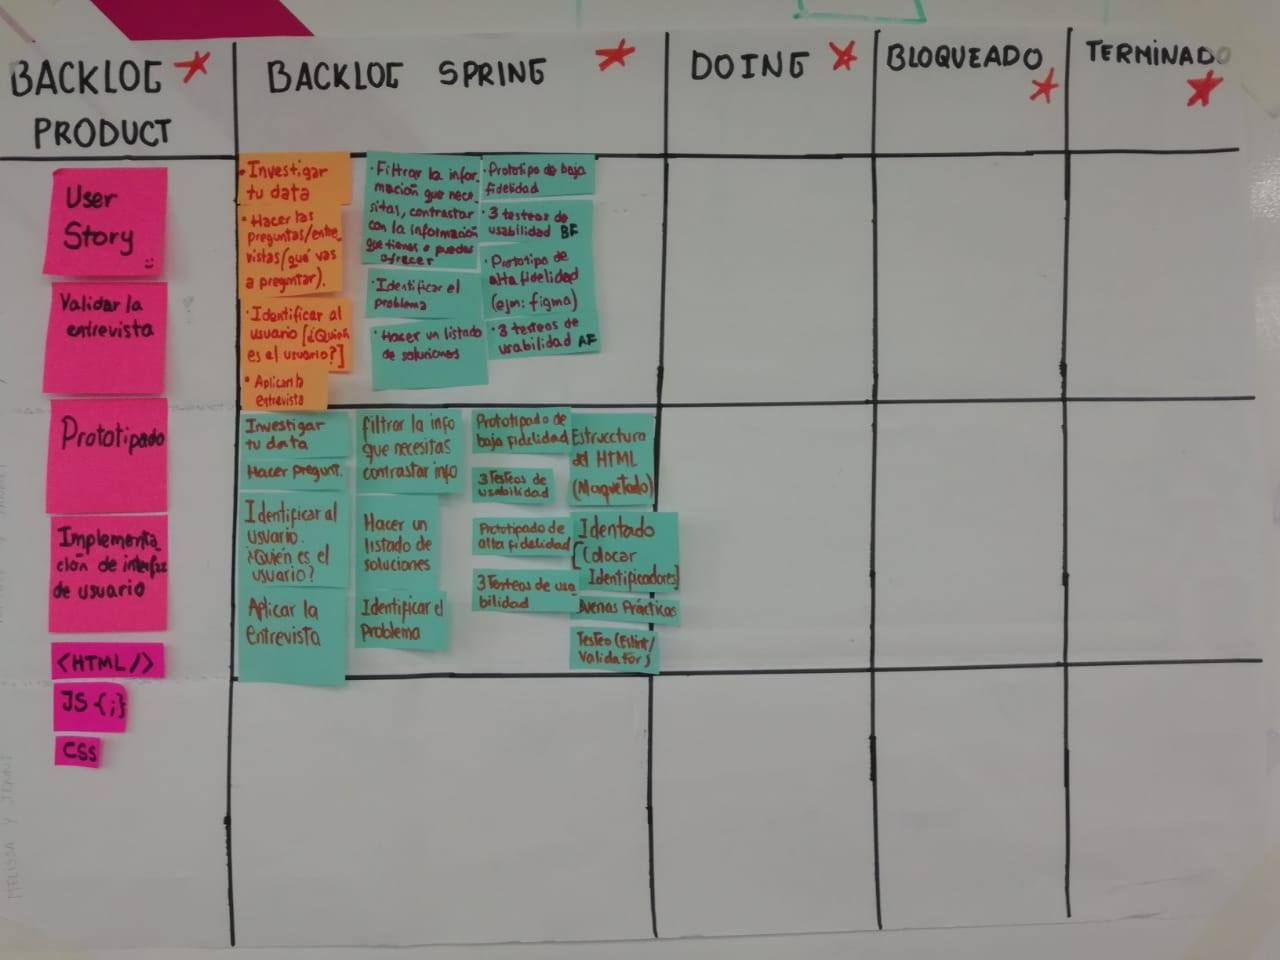 BACKLOG
PRODUCT
BACKLOG SPRING
DOING
BLOQUEADO
TERMINADO
User
Story
Validar la
entrevista
Prototipado
Implementa
ción de interfaz
de usuario
<HTML/>
JS {;}
CSS
• Investigar
tu data
• Hacer las
preguntas/entre-
vistas (qué vas
a preguntar).
• Identificar al
usuario [¿Quién
es el usuario?]
• Aplicar la
entrevista
• Filtrar la infor-
mación que nece-
sitas, contrastar
con la información
que tienes o puedes
ofrecer
• Identificar el
problema
• Hacer un listado
de soluciones
• Prototipo de baja
fidelidad
• 3 testeos de
usabilidad BF
• Prototipo de
alta fidelidad
(ejm: figma)
• 3 testeos de
usabilidad AF
Investigar
tu data
Hacer pregunt.
Identificar al
usuario.
¿Quién es el
usuario?
Aplicar la
entrevista
filtrar la info
que necesitas
contrastar info
Hacer un
listado de
soluciones
Identificar el
problema
Prototipado de
baja fidelidad
3 Testeos de
usabilidad
Prototipado de
alta fidelidad
3 Testeos de usa
bilidad
Estructura
del HTML
(Maquetado)
Identado
[Colocar
Identificadores]
Buenas Prácticas
Testeo (Eslint/
Validator)
MELISSA Y